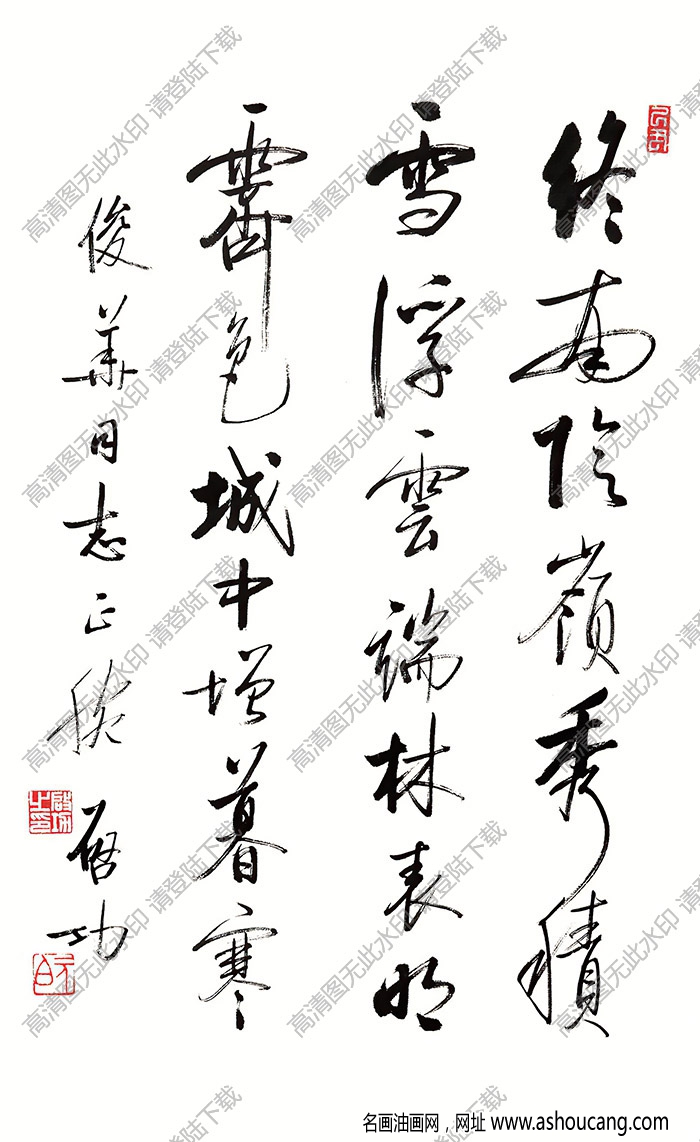 終南陰嶺秀積
雪浮雲端林表明
霽色城中增暮寒
俊華同志正腕 启功
啟功之印
元白
高清图无此水印 请登陆下载
名画油画网，网址 www.ashoucang.com